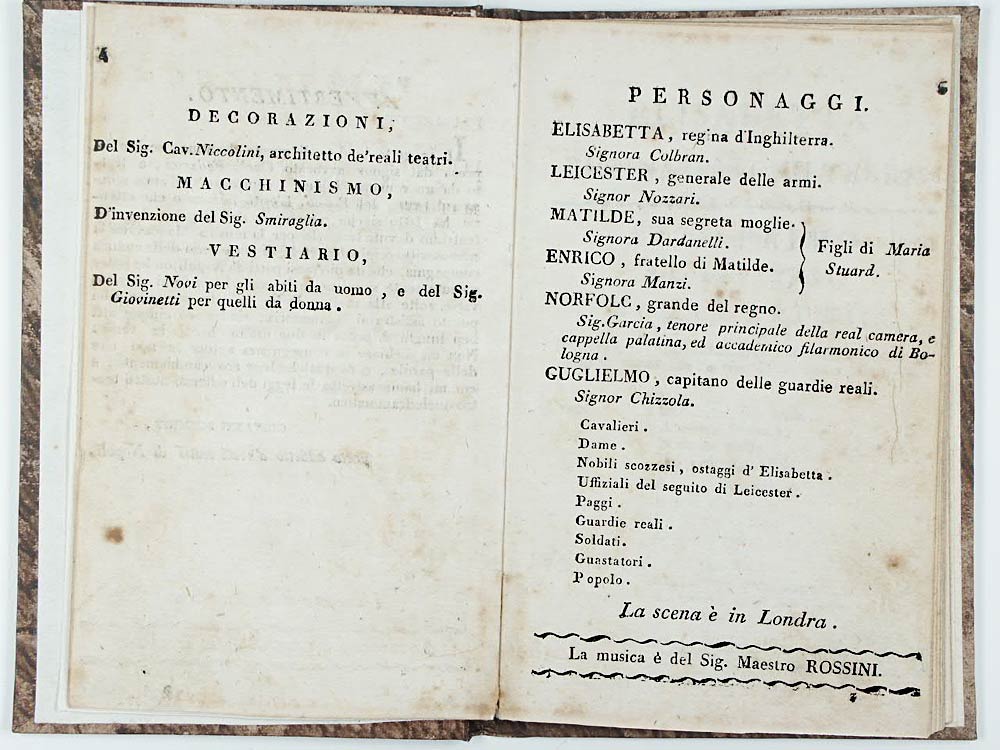 4
DECORAZIONI,
Del Sig. Cav. Niccolini, architetto de'reali teatri.
MACCHINISMO,
D'invenzione del Sig. Smiraglia.
VESTIARIO,
Del Sig. Novi per gli abiti da uomo, e del Sig.
Giovinetti per quelli da donna.
PERSONAGGI.
ELISABETTA, regina d'Inghilterra.
Signora Colbran.
LEICESTER, generale delle armi.
Signor Nozzari.
MATILDE, sua segreta moglie.
Signora Dardanelli.
ENRICO, fratello di Matilde.
Signora Manzi.
Figli di Maria
Stuard.
NORFOLC, grande del regno.
Sig. Garcia, tenore principale della real camera, e
cappella palatina, ed accademico filarmonico di Bo-
logna.
GUGLIELMO, capitano delle guardie reali.
Signor Chizzola.
Cavalieri.
Dame.
Nobili scozzesi, ostaggi d' Elisabetta.
Uffiziali del seguito di Leicester.
Paggi.
Guardie reali.
Soldati.
Guastatori.
Popolo.
La scena è in Londra.
La musica è del Sig. Maestro ROSSINI.